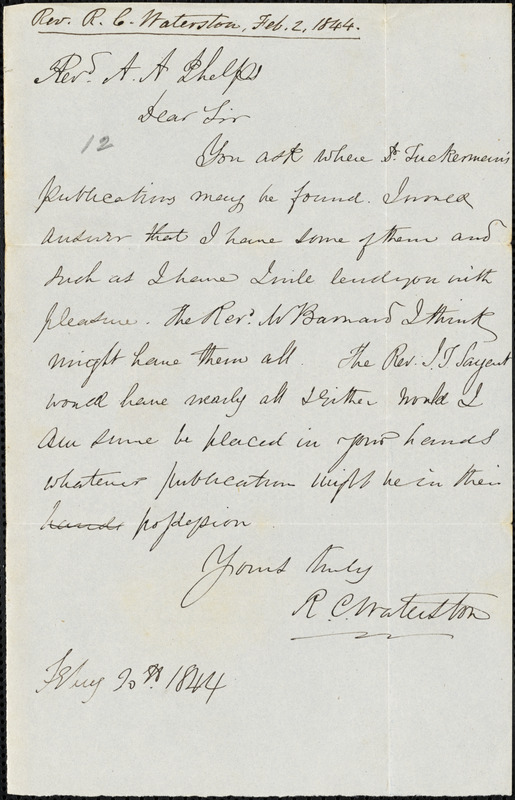 Rev. R. C. Waterston, Feb. 2, 1844.
Revd. A. A Phelps
Dear Sir
12
You ask where Dr. Tuckerman's
publications may be found. I would
answer that I have some of them and
such as I have I will lend you with
pleasure. The Revd. Mr Barnard I think
might have them all. The Rev. J. T. Sargent
would have nearly all & Either would I
am sure be placed in your hands
whatever publication might be in their
hands possession
Yours truly
R. C. Waterston
20th. 1844